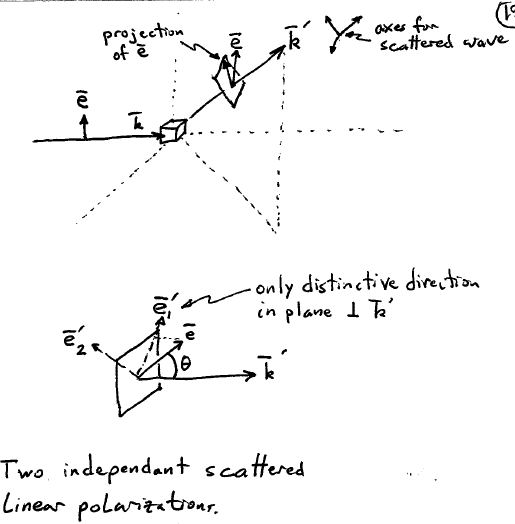 projection
of ē
ē
k̄′
axes for
scattered wave
ē
k̄
only distinctive direction
in plane ⊥ k̄′
ē₁′
ē₂′
ē
θ
k̄′
Two independant scattered
Linear polarizations.